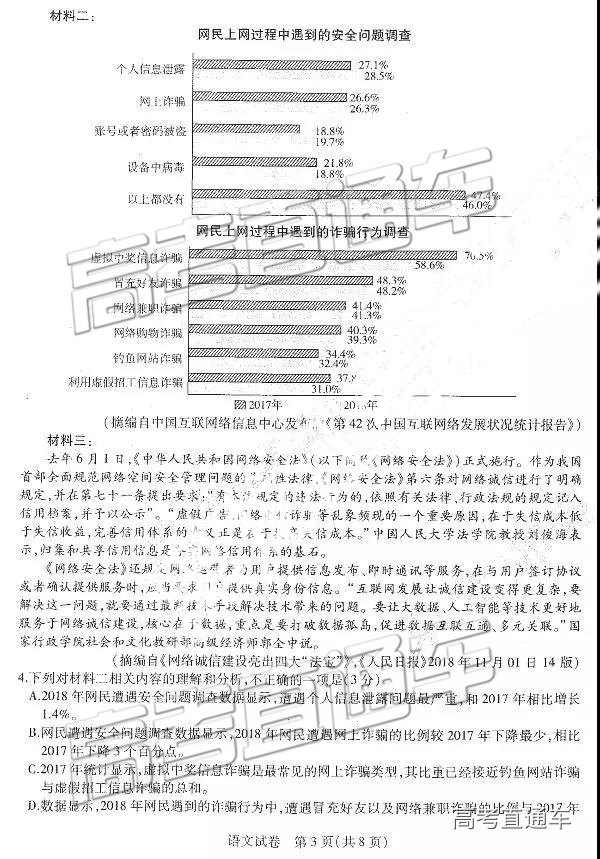 材料二：
网民上网过程中遇到的安全问题调查
个人信息泄露 27.1%
28.5%
网上诈骗 26.6%
26.3%
账号或者密码被盗 18.8%
19.7%
设备中病毒 21.8%
18.8%
以上都没有 47.4%
46.0%
网民上网过程中遇到的诈骗行为调查
虚拟中奖信息诈骗 70.5%
58.6%
冒充好友诈骗 48.3%
48.2%
网络兼职诈骗 41.4%
41.3%
网络购物诈骗 40.3%
39.3%
钓鱼网站诈骗 34.4%
32.4%
利用虚假招工信息诈骗 37.8
31.0%
2017年
(摘编自中国互联网络信息中心发布《第42次中国互联网络发展状况统计报告》)
材料三：
去年6月1日,《中华人民共和国网络安全法》(以下简称《网络安全法》)正式施行。作为我国
首部全面规范网络空间安全管理问题的 性法律,《网络安全法》第六条对网络诚信进行了明确
规定,并在第七十一条提出要求:“有本法规定的违法行为的,依照有关法律、行政法规的规定记入
信用档案,并予以公示”。“虚假广告、网络电信诈骗等乱象频现的一个重要原因,在于失信成本低
于失信收益,完善信用体系的意义正是在于 失信成本。”中国人民大学法学院教授刘俊海表
示,归集和共享信用信息是 网络信用体系的基石。
《网络安全法》还规定网络运营者为用户提供信息发布、即时通讯等服务,在与用户签订协议
或者确认提供服务时,应当要求用户提供真实身份信息。“互联网发展让诚信建设变得更复杂,要
解决这一问题,就要通过最新技术手段解决技术带来的问题。要让大数据、人工智能等技术更好地
服务于网络诚信建设,核心在于数据,重点是要打破数据孤岛,促进数据互联互通、多元关联。”国
家行政学院社会和文化教研部高级经济师郭全中说。
(摘编自《网络诚信建设亮出四大“法宝”》,《人民日报》2018年11月01日14版)
4.下列对材料二相关内容的理解和分析,不正确的一项是(3分)
A.2018年网民遭遇安全问题调查数据显示,遭遇个人信息泄露问题最严重,和2017年相比增长
1.4%。
B.网民遭遇安全问题调查数据显示,2018年网民遭遇网上诈骗的比例较2017年下降最少,相比
2017年下降3个百分点。
C.2017年统计显示,虚拟中奖信息诈骗是最常见的网上诈骗类型,其比重已经接近钓鱼网站诈骗
与虚假招工信息诈骗的总和。
D.数据显示,2018年网民遇到的诈骗行为中,遭遇冒充好友以及网络兼职诈骗的比例与2017年
语文试卷 第3页(共8页)
高考直通车
高考直通车
高考直通车